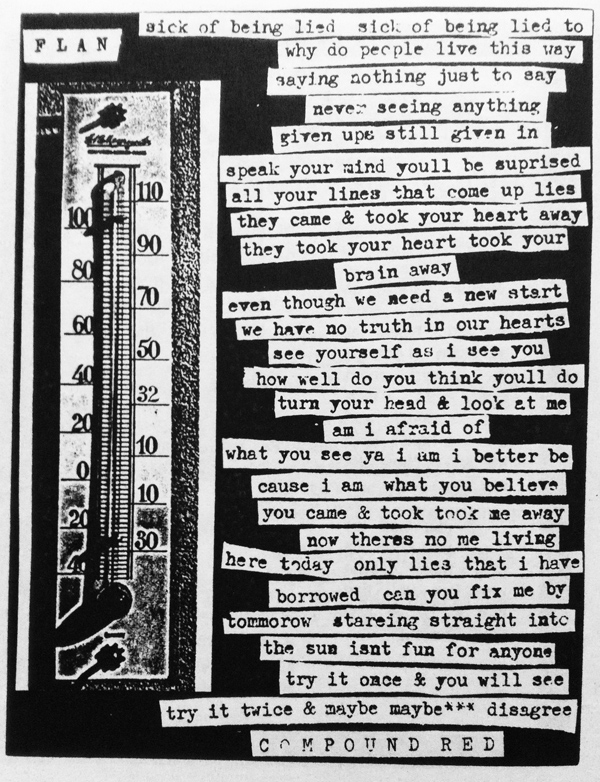 FLAN
sick of being lied sick of being lied to
why do people live this way
saying nothing just to say
never seeing anything
given ups still given in
speak your mind youll be suprised
all your lines that come up lies
they came & took your heart away
they took your heart took your
brain away
even though we need a new start
we have no truth in our hearts
see yourself as i see you
how well do you think youll do
turn your head & look at me
am i afraid of
what you see ya i am i better be
cause i am what you believe
you came & took took me away
now theres no me living
here today only lies that i have
borrowed can you fix me by
tommorow stareing straight into
the sun isnt fun for anyone
try it once & you will see
try it twice & maybe maybe*** disagree
COMPOUND RED
110
100
90
80
70
60
50
40
32
20
10
0
10
20
30
40